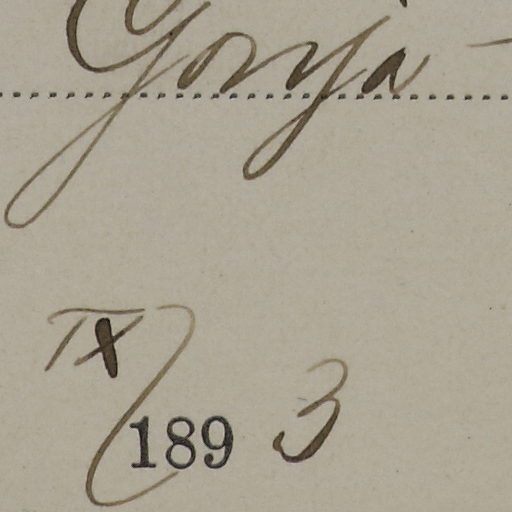 Gonja -
IX
189 3